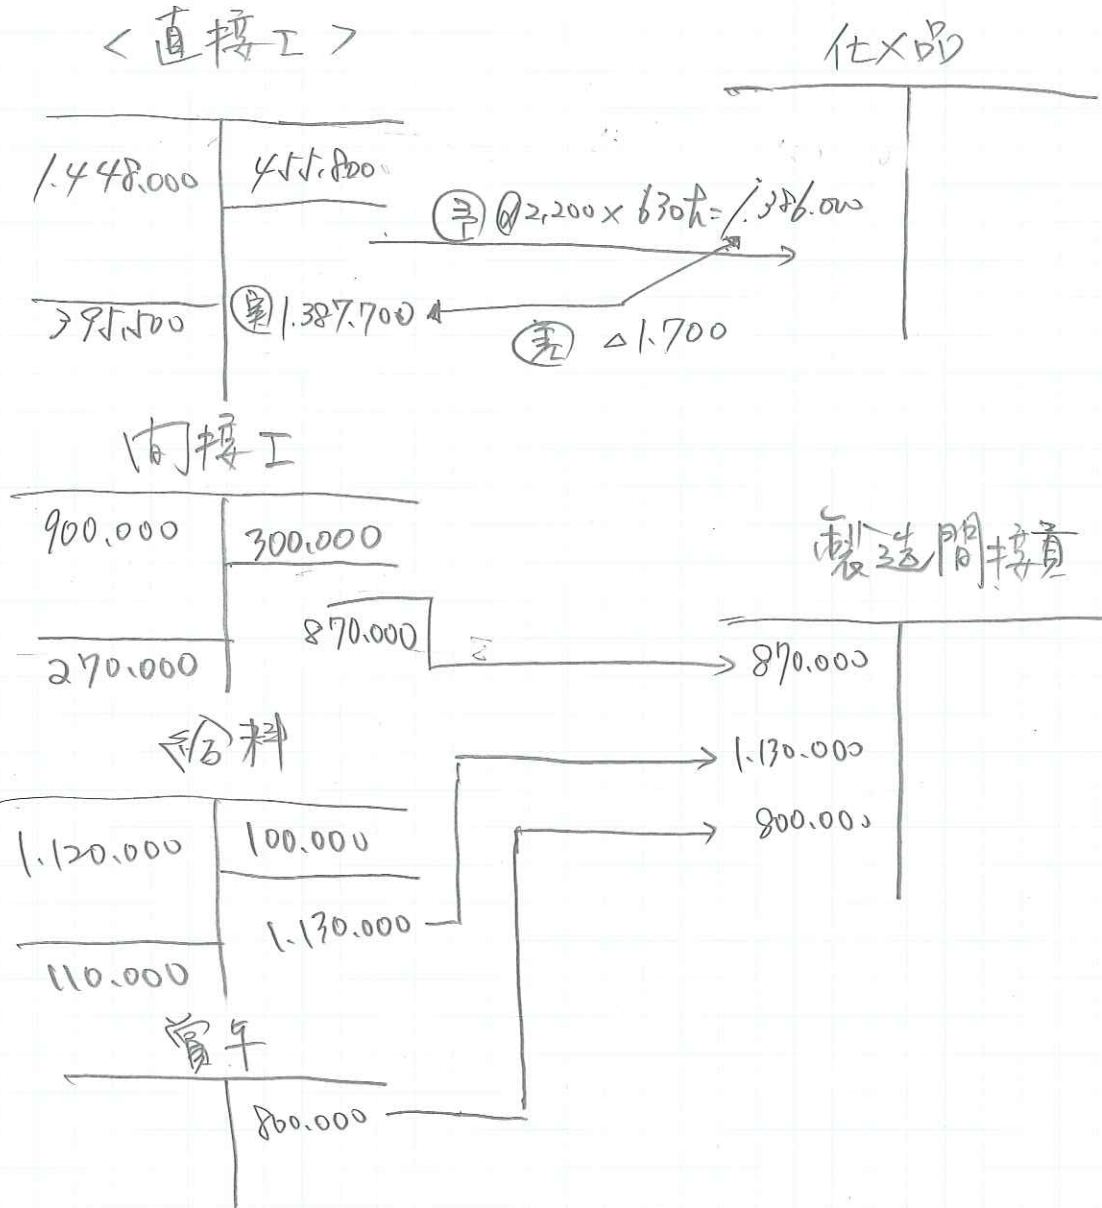 ＜直接工＞
仕×品
1.448.000
455.800
予 @2,200×630h=1.386.000
395.500
実 1.387.700
差 △1.700
間接工
900.000
300.000
製造間接費
870.000
870.000
270.000
給料
1.130.000
1.120.000
100.000
800.000
1.130.000
110.000
賞与
800.000